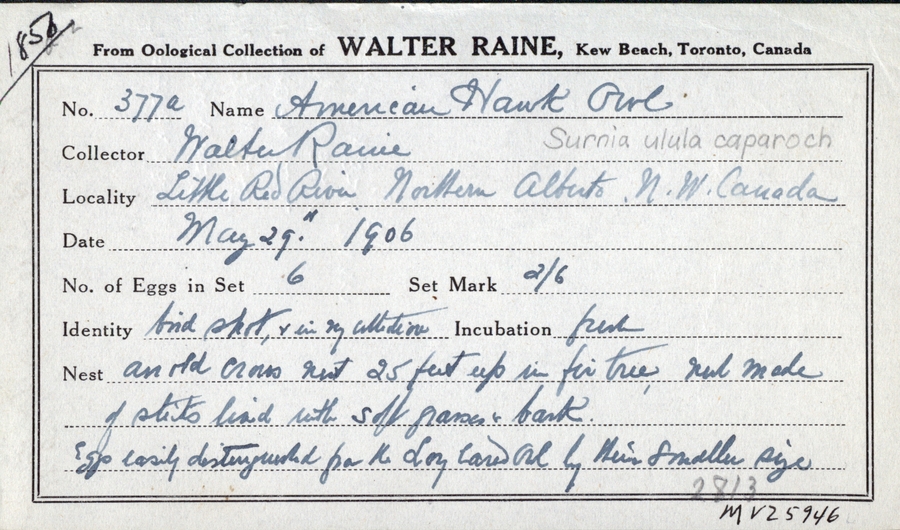 1850
From Oological Collection of WALTER RAINE, Kew Beach, Toronto, Canada
No. 377a Name American Hawk Owl
Surnia ulula caparoch
Collector Walter Raine
Locality Little Red River Northern Alberta N.W. Canada
Date May 29." 1906
No. of Eggs in Set 6 Set Mark 2/6
Identity bird shot, & in my collection Incubation fresh
Nest an old crows nest 25 feet up in fir tree, nest made
of sticks lined with soft grasses & bark.
Eggs easily distinguished from the Long Eared Owl by their smaller size
2813
MVZ 5946